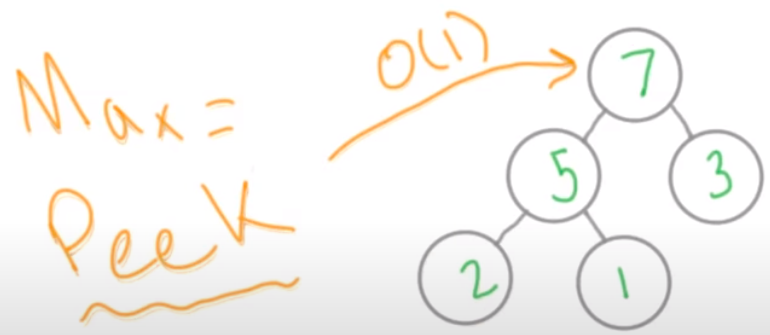 Max =
Peek
O(1)
7
5
3
2
1